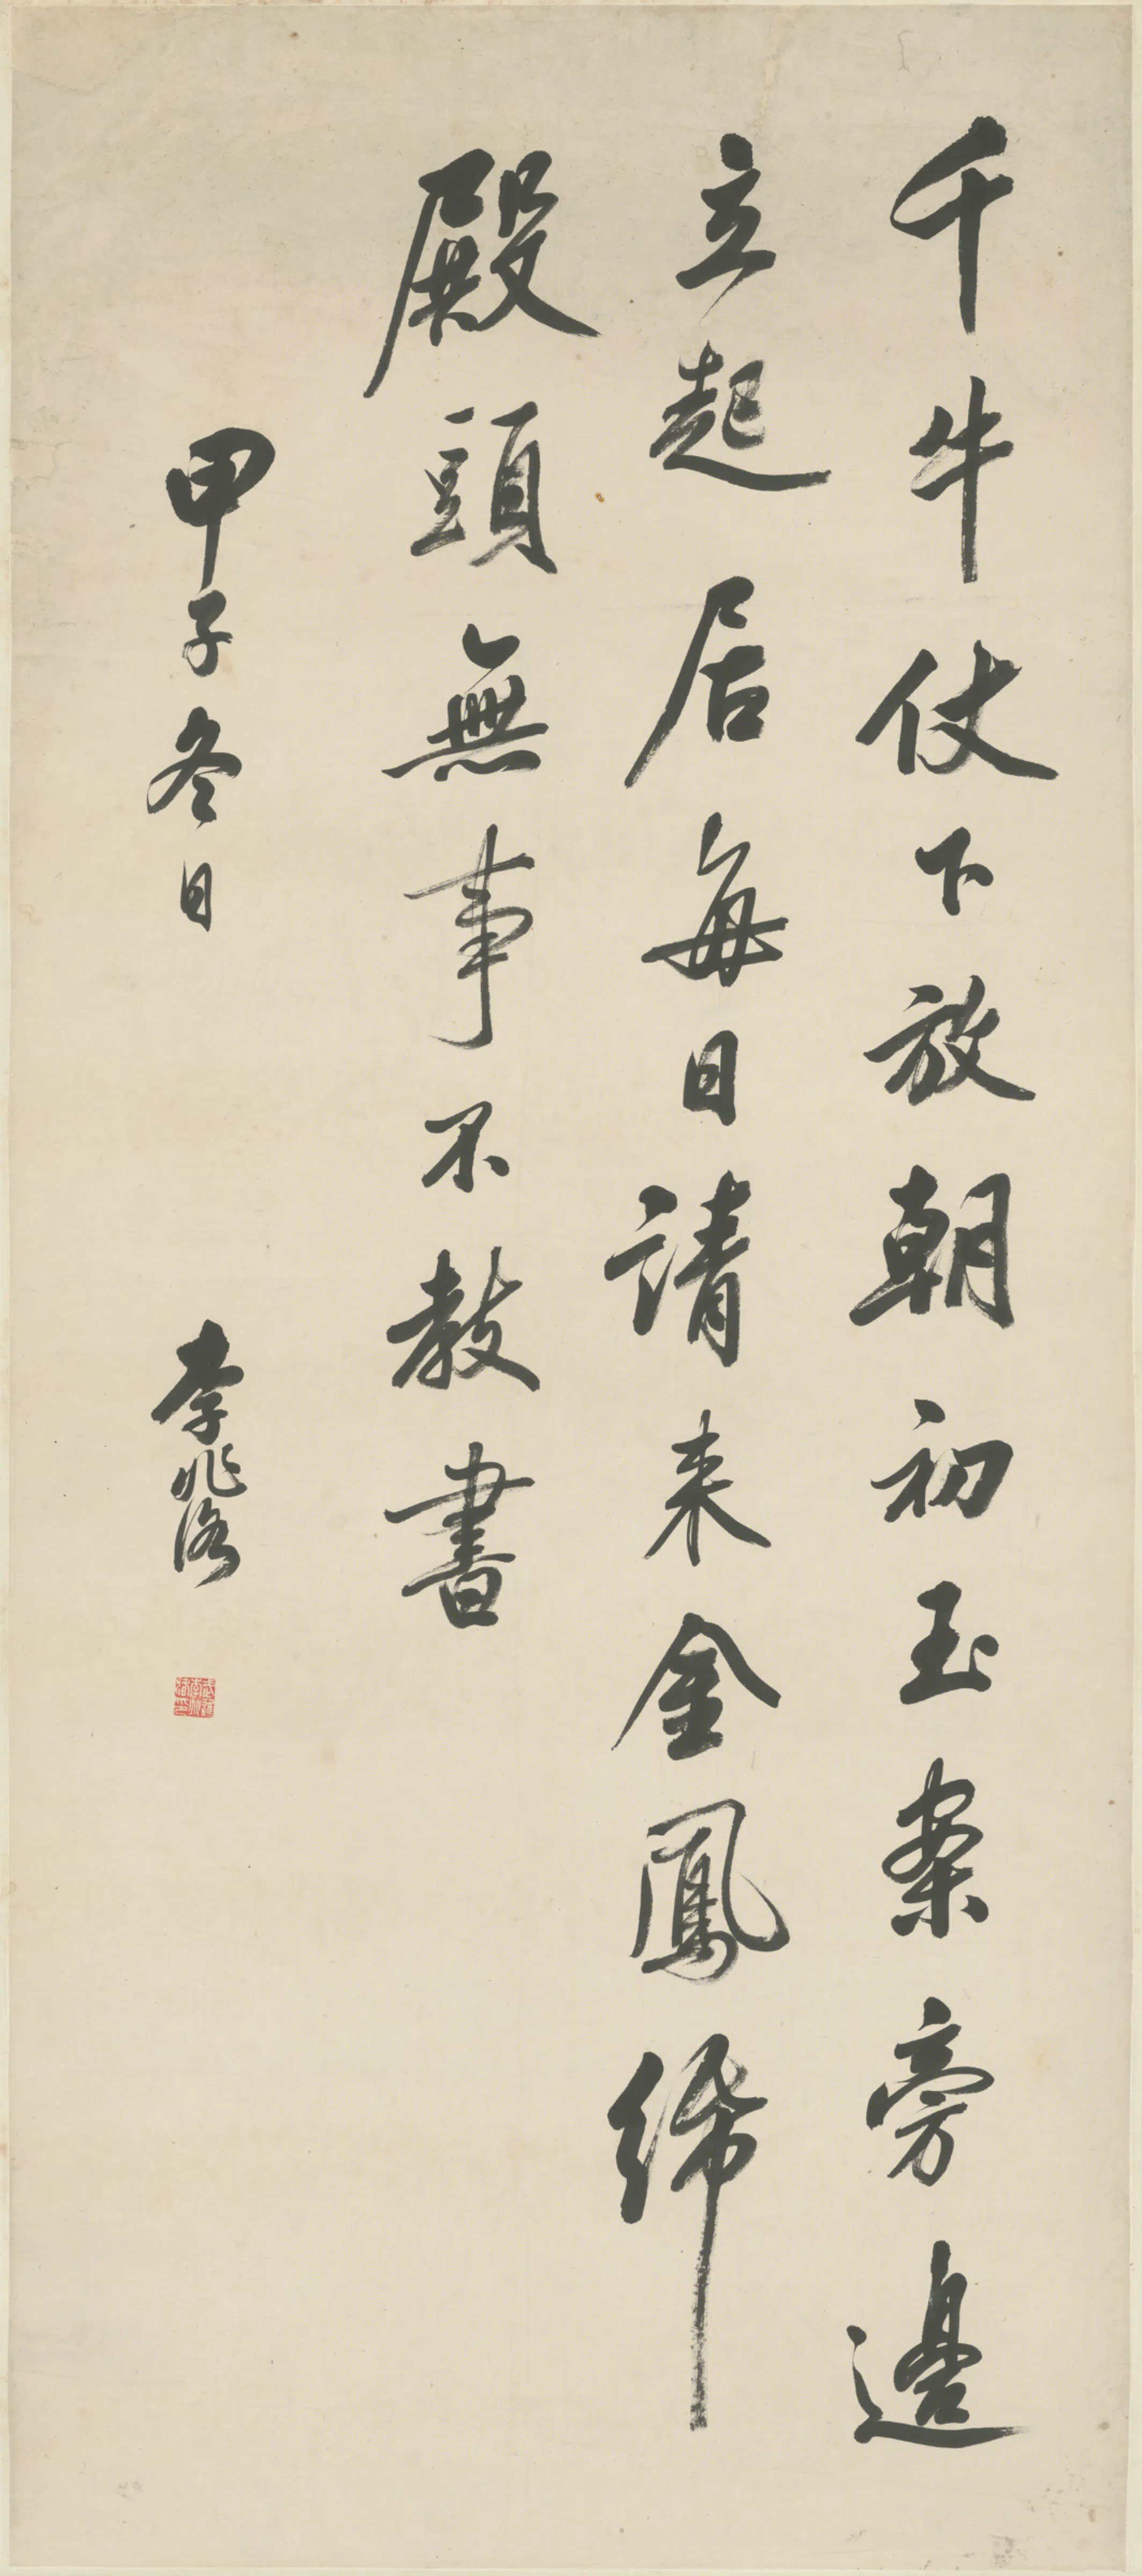 千牛仗下放朝初玉案旁邊
立起居每日請来金鳳紙
殿頭無事不教書
甲子冬日 李兆洛